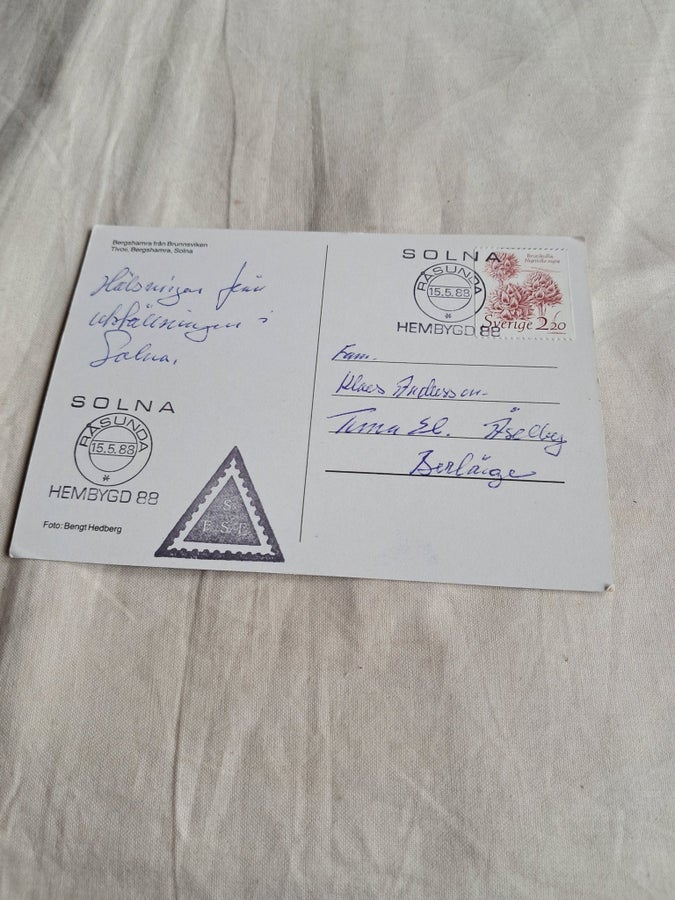 Bergshamra från Brunnsviken
Tivoli, Bergshamra, Solna
Hälsningar från
utställningen i
Solna.
SOLNA
RÅSUNDA
15.5.88
*
HEMBYGD 88
Foto: Bengt Hedberg
S
F.S.F
SOLNA
RÅSUNDA
15.5.88
*
HEMBYGD 88
Sverige 2.20
Fam.
Klaes Andersson
Borlänge